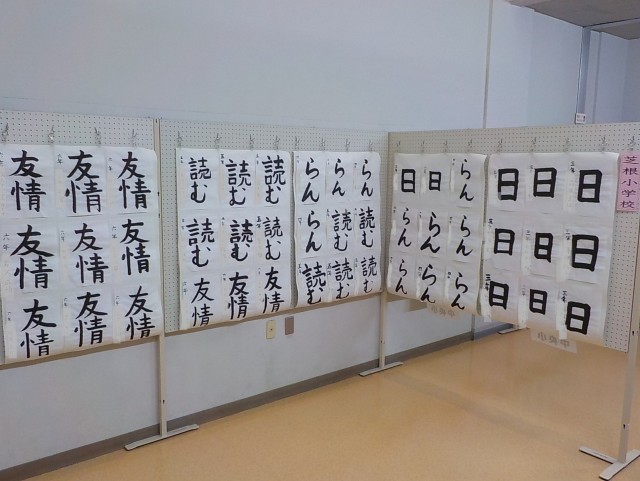 友情
友情
友情
友情
友情
友情
友情
友情
友情
読む
読む
読む
読む
読む
読む
友情
友情
友情
らん
らん
らん
らん
読む
読む
読む
読む
読む
日
日
らん
らん
らん
らん
らん
らん
らん
日
日
日
日
日
日
日
日
日
芝根小学校